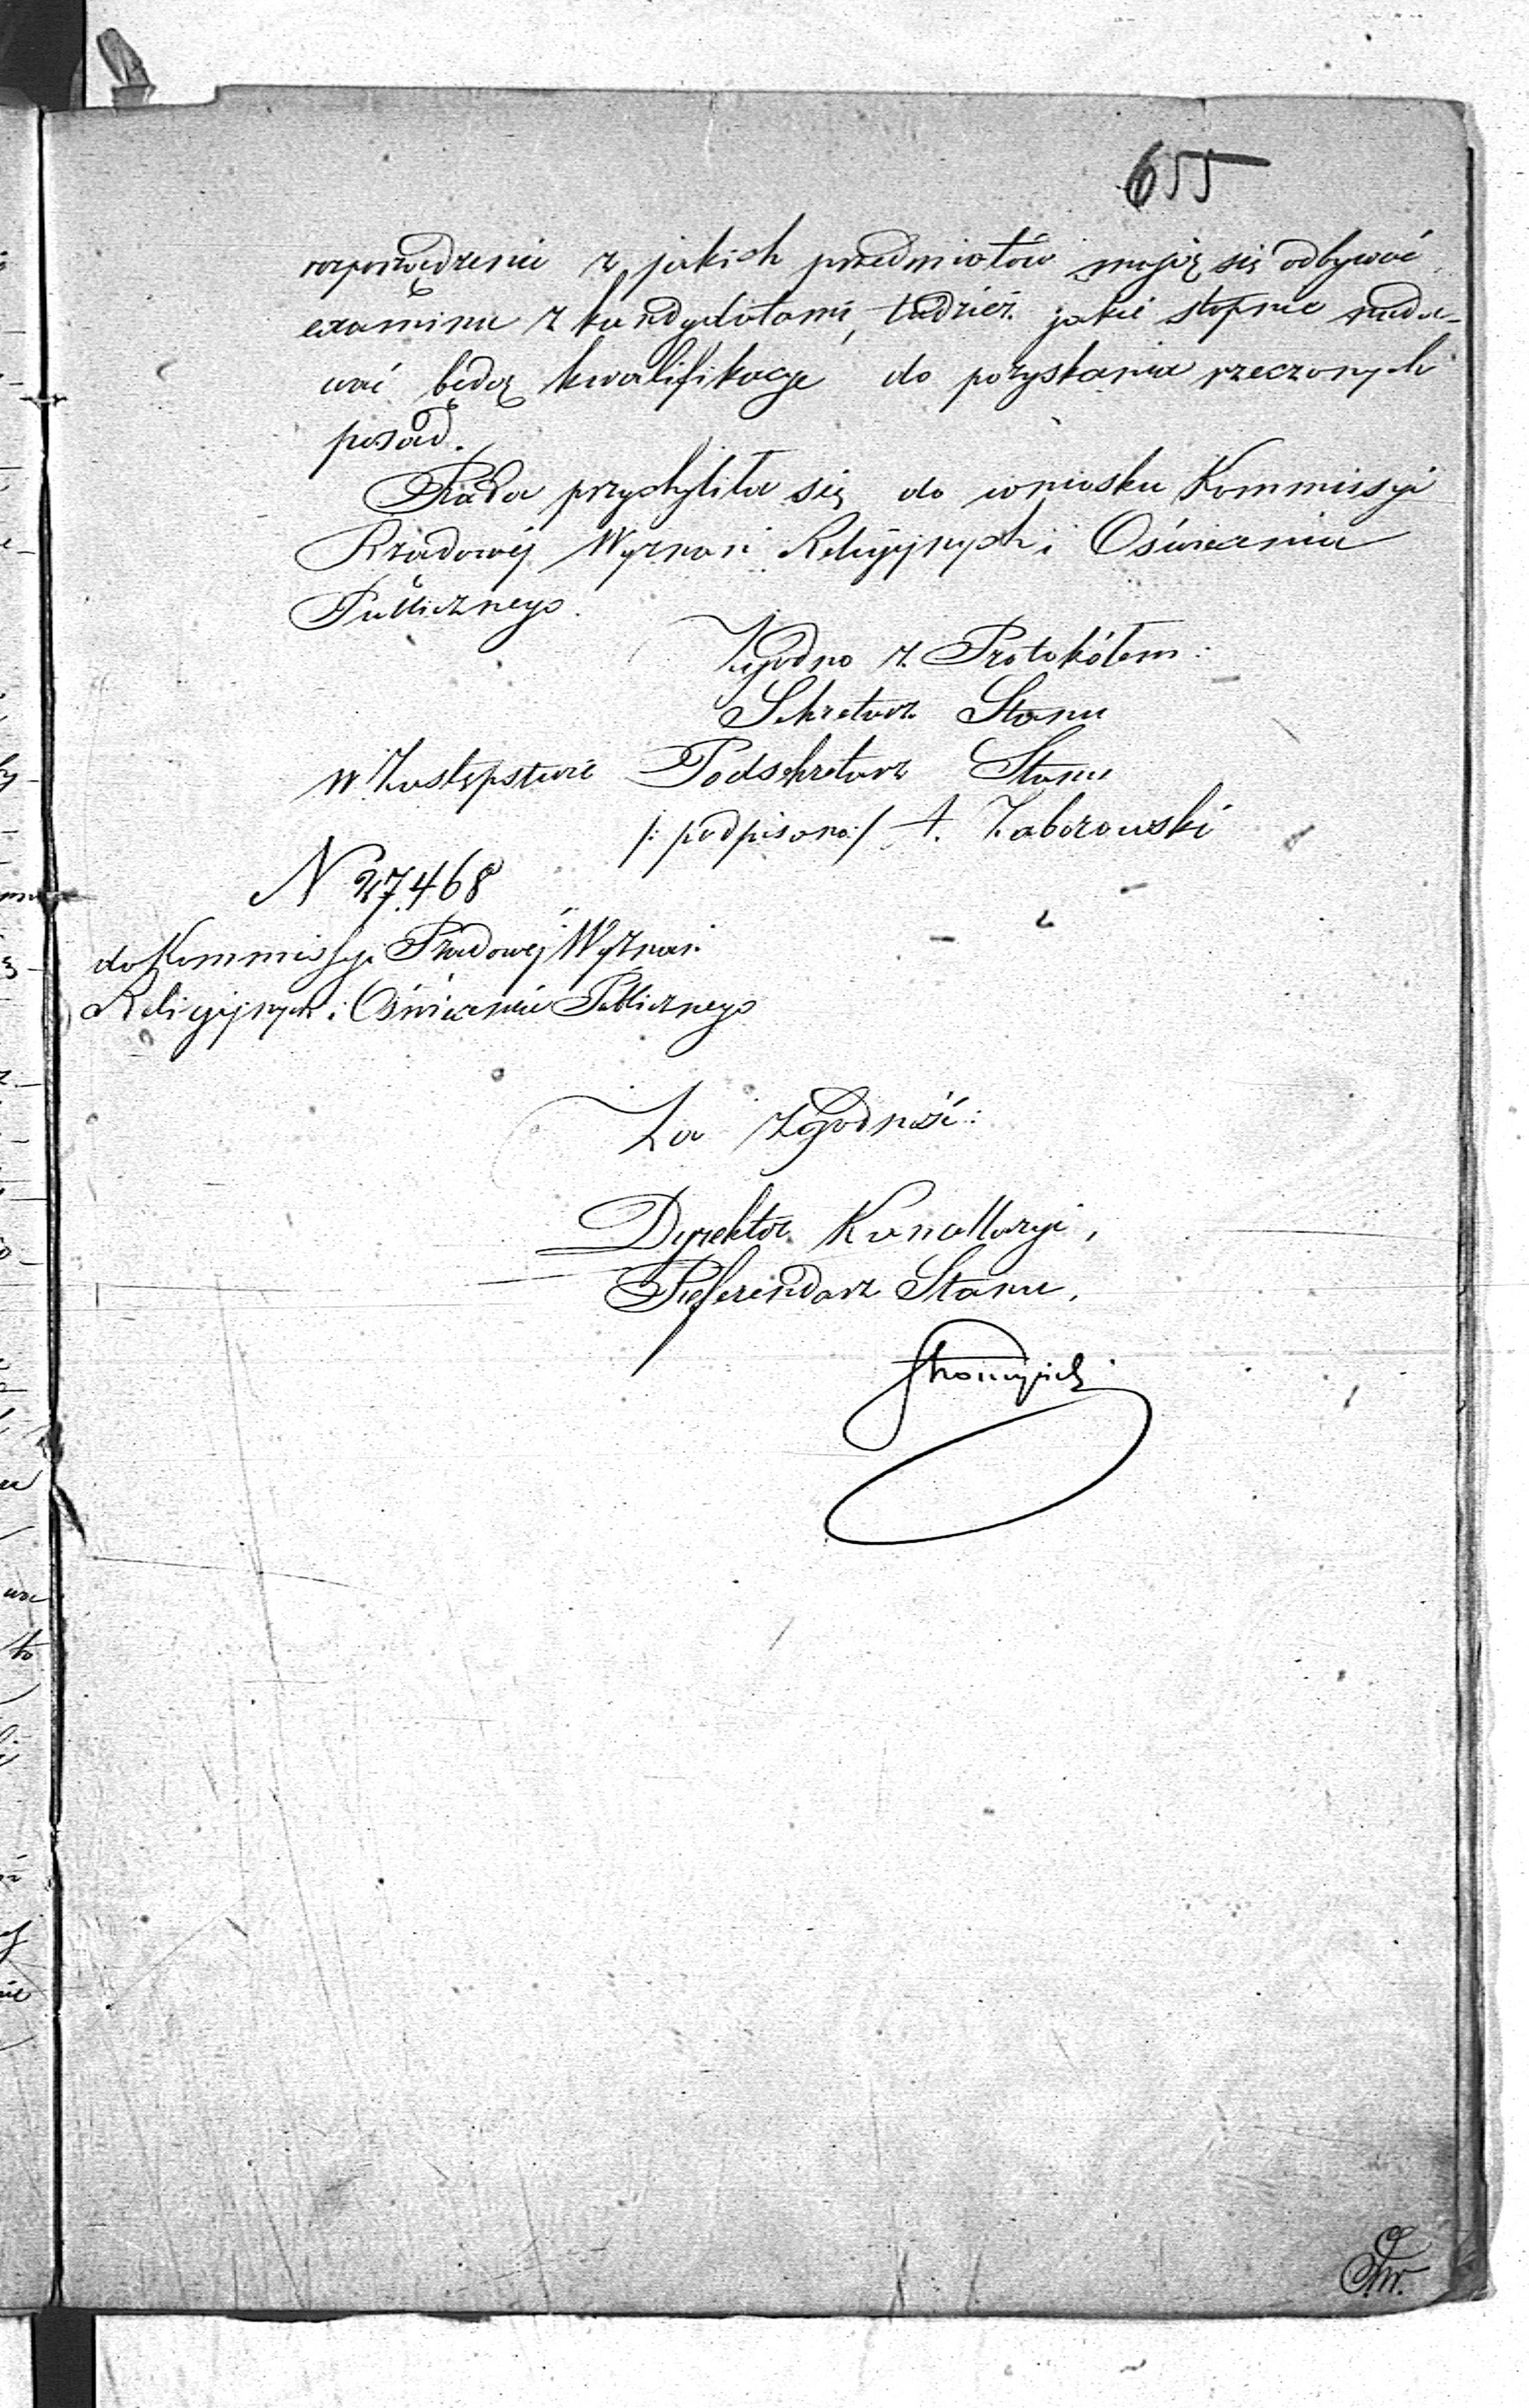 655
rozporządzenie z jakich przedmiotów mają się odbywać
examina z kandydatami, tudzież jakie stopnie nada-
wać będą kwalifikacje do pozyskania rzeczonych
posad.
Rada przychyliła się do wniosku Kommissyi
Rządowéj Wyznań Religijnych i Oświecenia
Publicznego.
Zgodno z Protokółem:
Sekretarz Stanu
w Zastępstwie Podsekretarz Stanu
/: podpisano:/ A. Zaborowski
N 27.468
do Kommissyi Rządowéj Wyznań
Religijnych i Oświecenia Publicznego
Za zgodność:
Dyrektor Kancellaryi,
Referendarz Stanu,